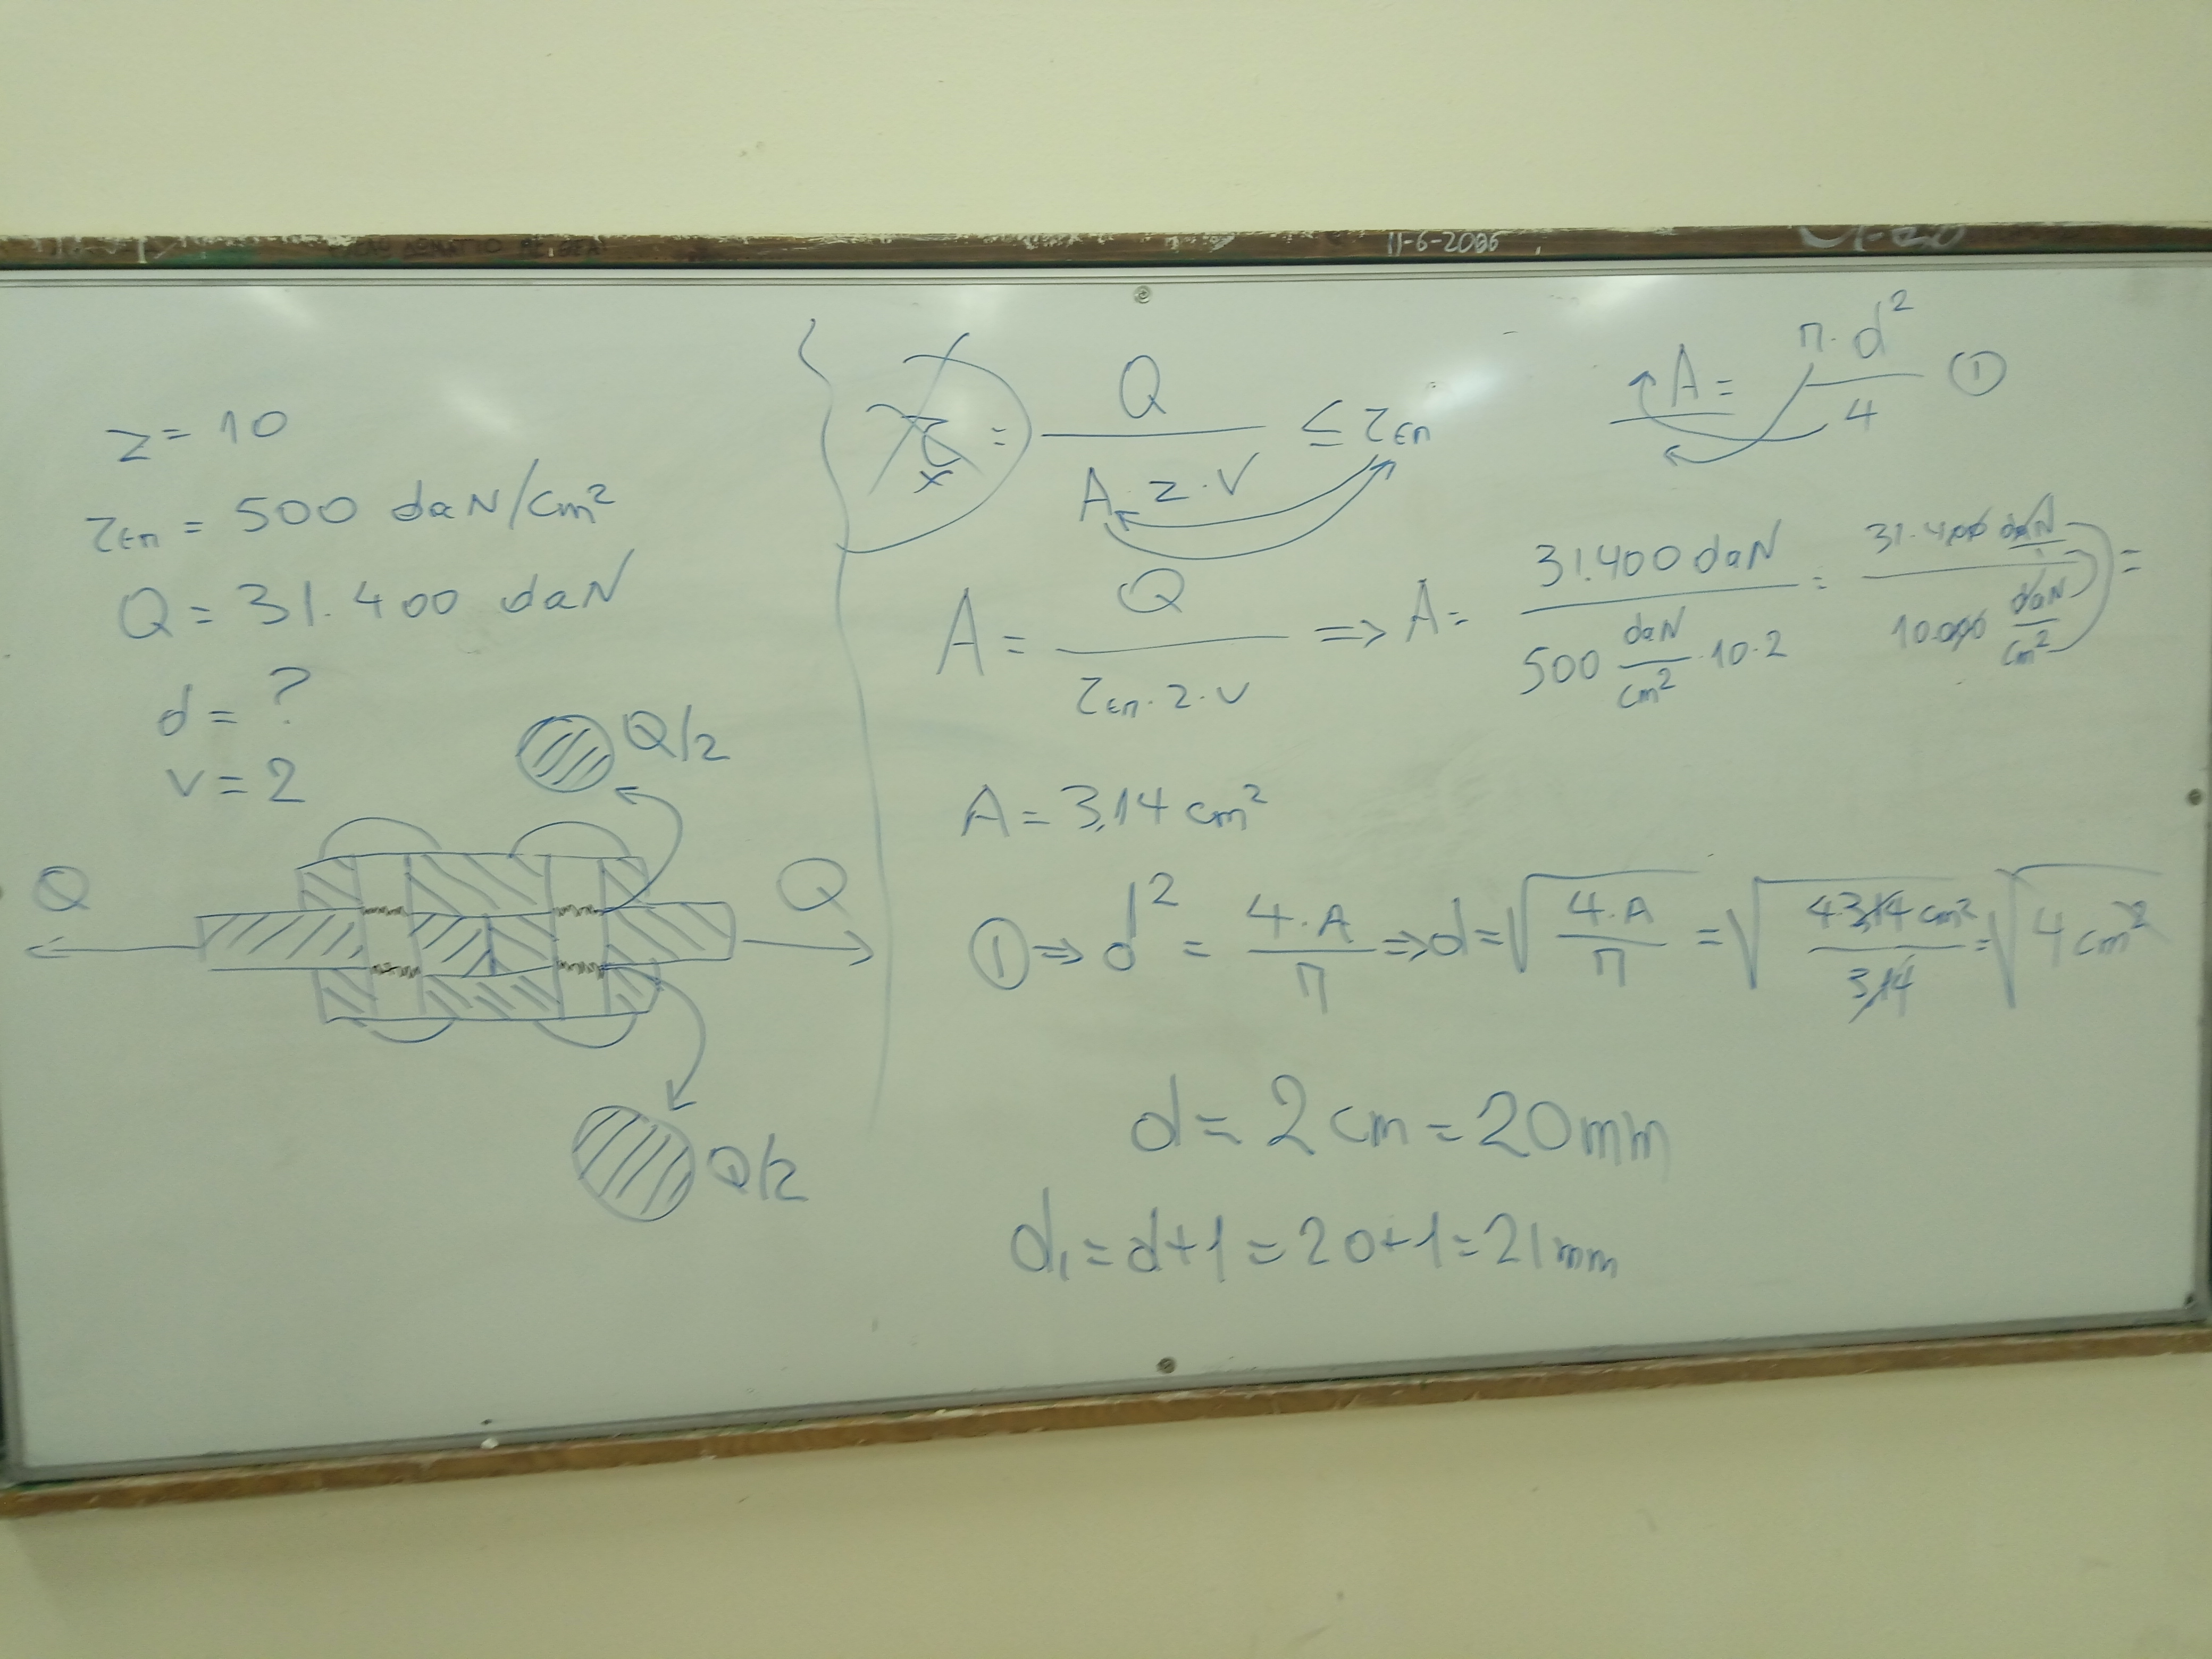 11-6-2006
z = 10
τεπ = 500 daN/cm²
Q = 31.400 daN
d = ?
v = 2
Q/2
Q
Q
Q/2
τ = Q / A·z·v ≤ τεπ
A = π·d² / 4 ①
A = Q / τεπ·z·v => A = 31.400 daN / 500 daN/cm² ·10·2 = 31.400 daN / 10.000 daN/cm² =
A = 3,14 cm²
① => d² = 4·A / π => d = √(4·A / π) = √(4·3,14 cm² / 3,14) = √(4 cm²)
d = 2 cm = 20 mm
d₁ = d+1 = 20+1 = 21 mm